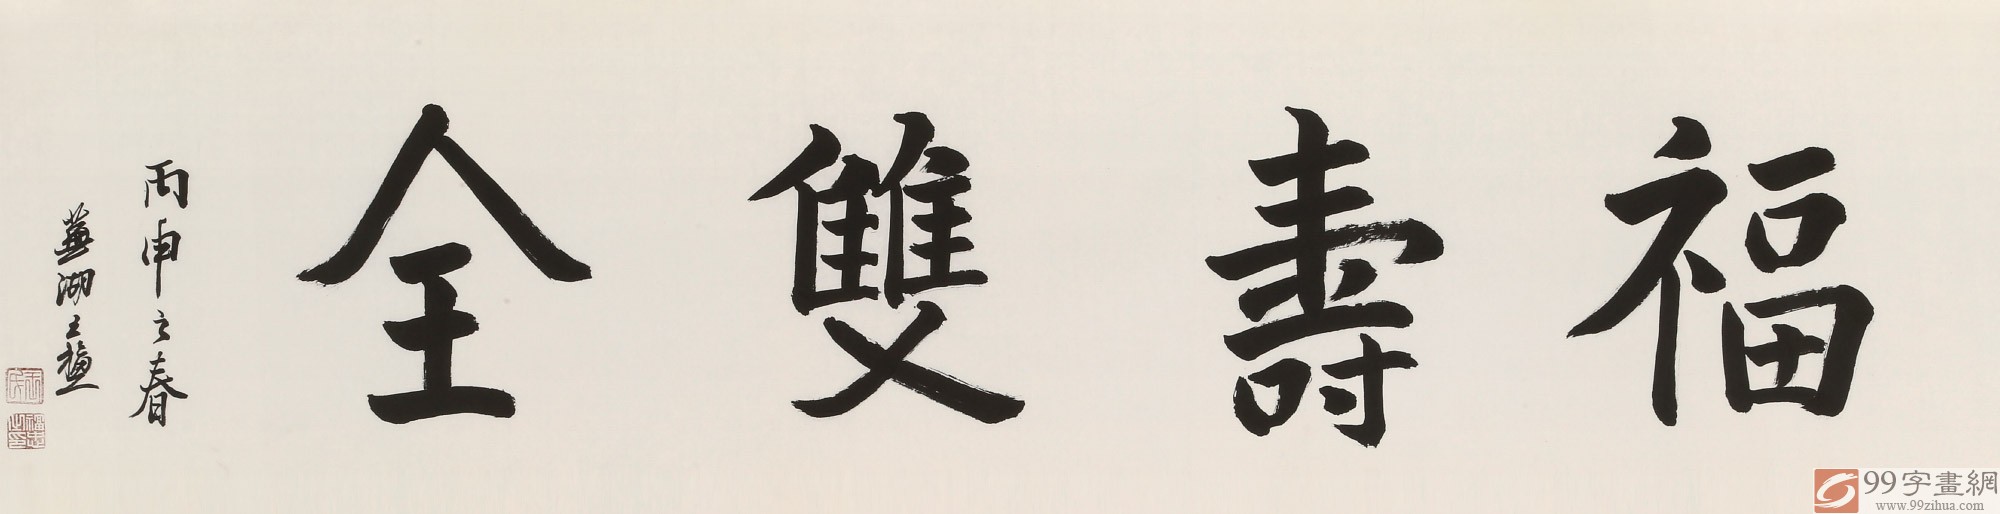 福壽雙全
丙申之春
蕪湖王
99字畫網
www.99zihua.com